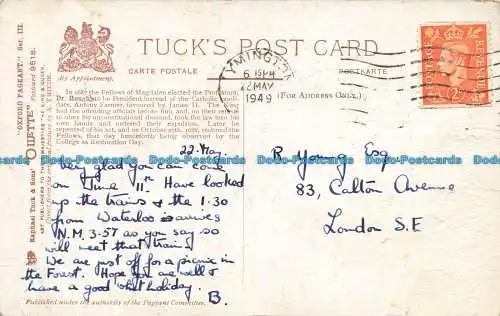 TUCK'S POST CARD
By Appointment.
CARTE POSTALE
POSTKARTE
(FOR ADDRESS ONLY.)
"OXFORD PAGEANT." Ser. III.
"OILETTE" Postcard 9518.
Raphael Tuck & Sons'
LYMINGTON
6 15PM
22 MAY
1949
POSTAGE
REVENUE
In 1687 the Fellows of Magdalen elected the Protestant,
Dr. Hough, to be President instead of the Catholic candi-
date, Antony Farmer, favoured by James II. The King
and the offending officials were fined, and upon their refusal to
alter the so unconstitutional demand, took the law into his
own hands and ordered their expulsion. Later he
repented of his act, and on October 25th, 1688, restored the
Fellows, that day heretofore being observed by the
College as Restoration Day.
22-May
Very glad you can come
on June 11th. Have looked
up the trains & the 1.30
from Waterloo arrives
N.M. 3.57 as you say so
will meet that train.
We are just off for a picnic in
the Forest. Hope you are well &
have a good Whit holiday.
B.
R Young Esq
83, Calton Avenue
London S.E
Published under the authority of the Pageant Committee.
Dodo-Postcards Dodo-Postcards Dodo-Postcards Dodo-Postcards Dodo-Postcards